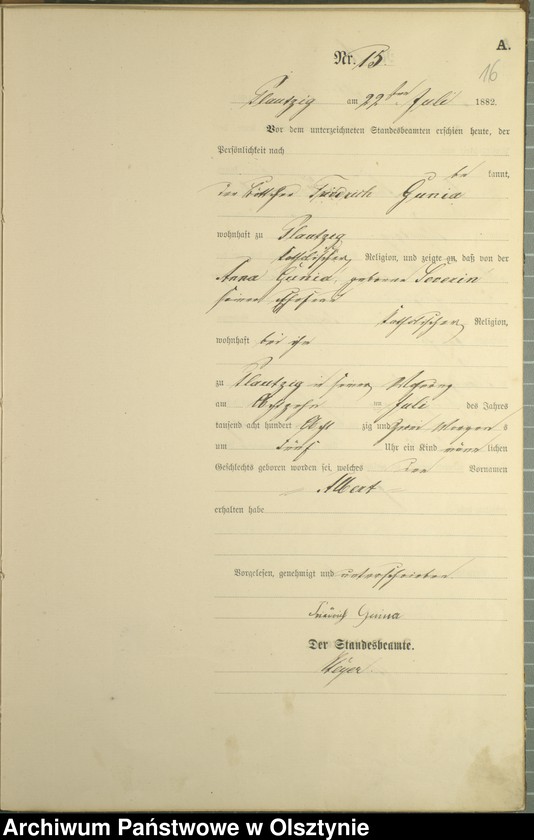 A.
16
Nr. 15.
Plautzig am 22ten Juli 1882.
Vor dem unterzeichneten Standesbeamten erschien heute, der
Persönlichkeit nach
be kannt,
der Friedrich Gunia
wohnhaft zu Plautzig
katholischer Religion, und zeigte an, daß von der
Anna Gunia, geborene Severin
seiner Ehefrau
katholischer Religion,
wohnhaft bei ihm
zu Plautzig in seiner Wohnung
am Achtzehn ten Juli des Jahres
tausend acht hundert Acht zig und Zwei Morgen s
um Fünf Uhr ein Kind männ lichen
Geschlechts geboren worden sei, welches den Vornamen
Albert
erhalten habe
Vorgelesen, genehmigt und unterschrieben
Friedrich Gunia
Der Standesbeamte.
Archiwum Państwowe w Olsztynie